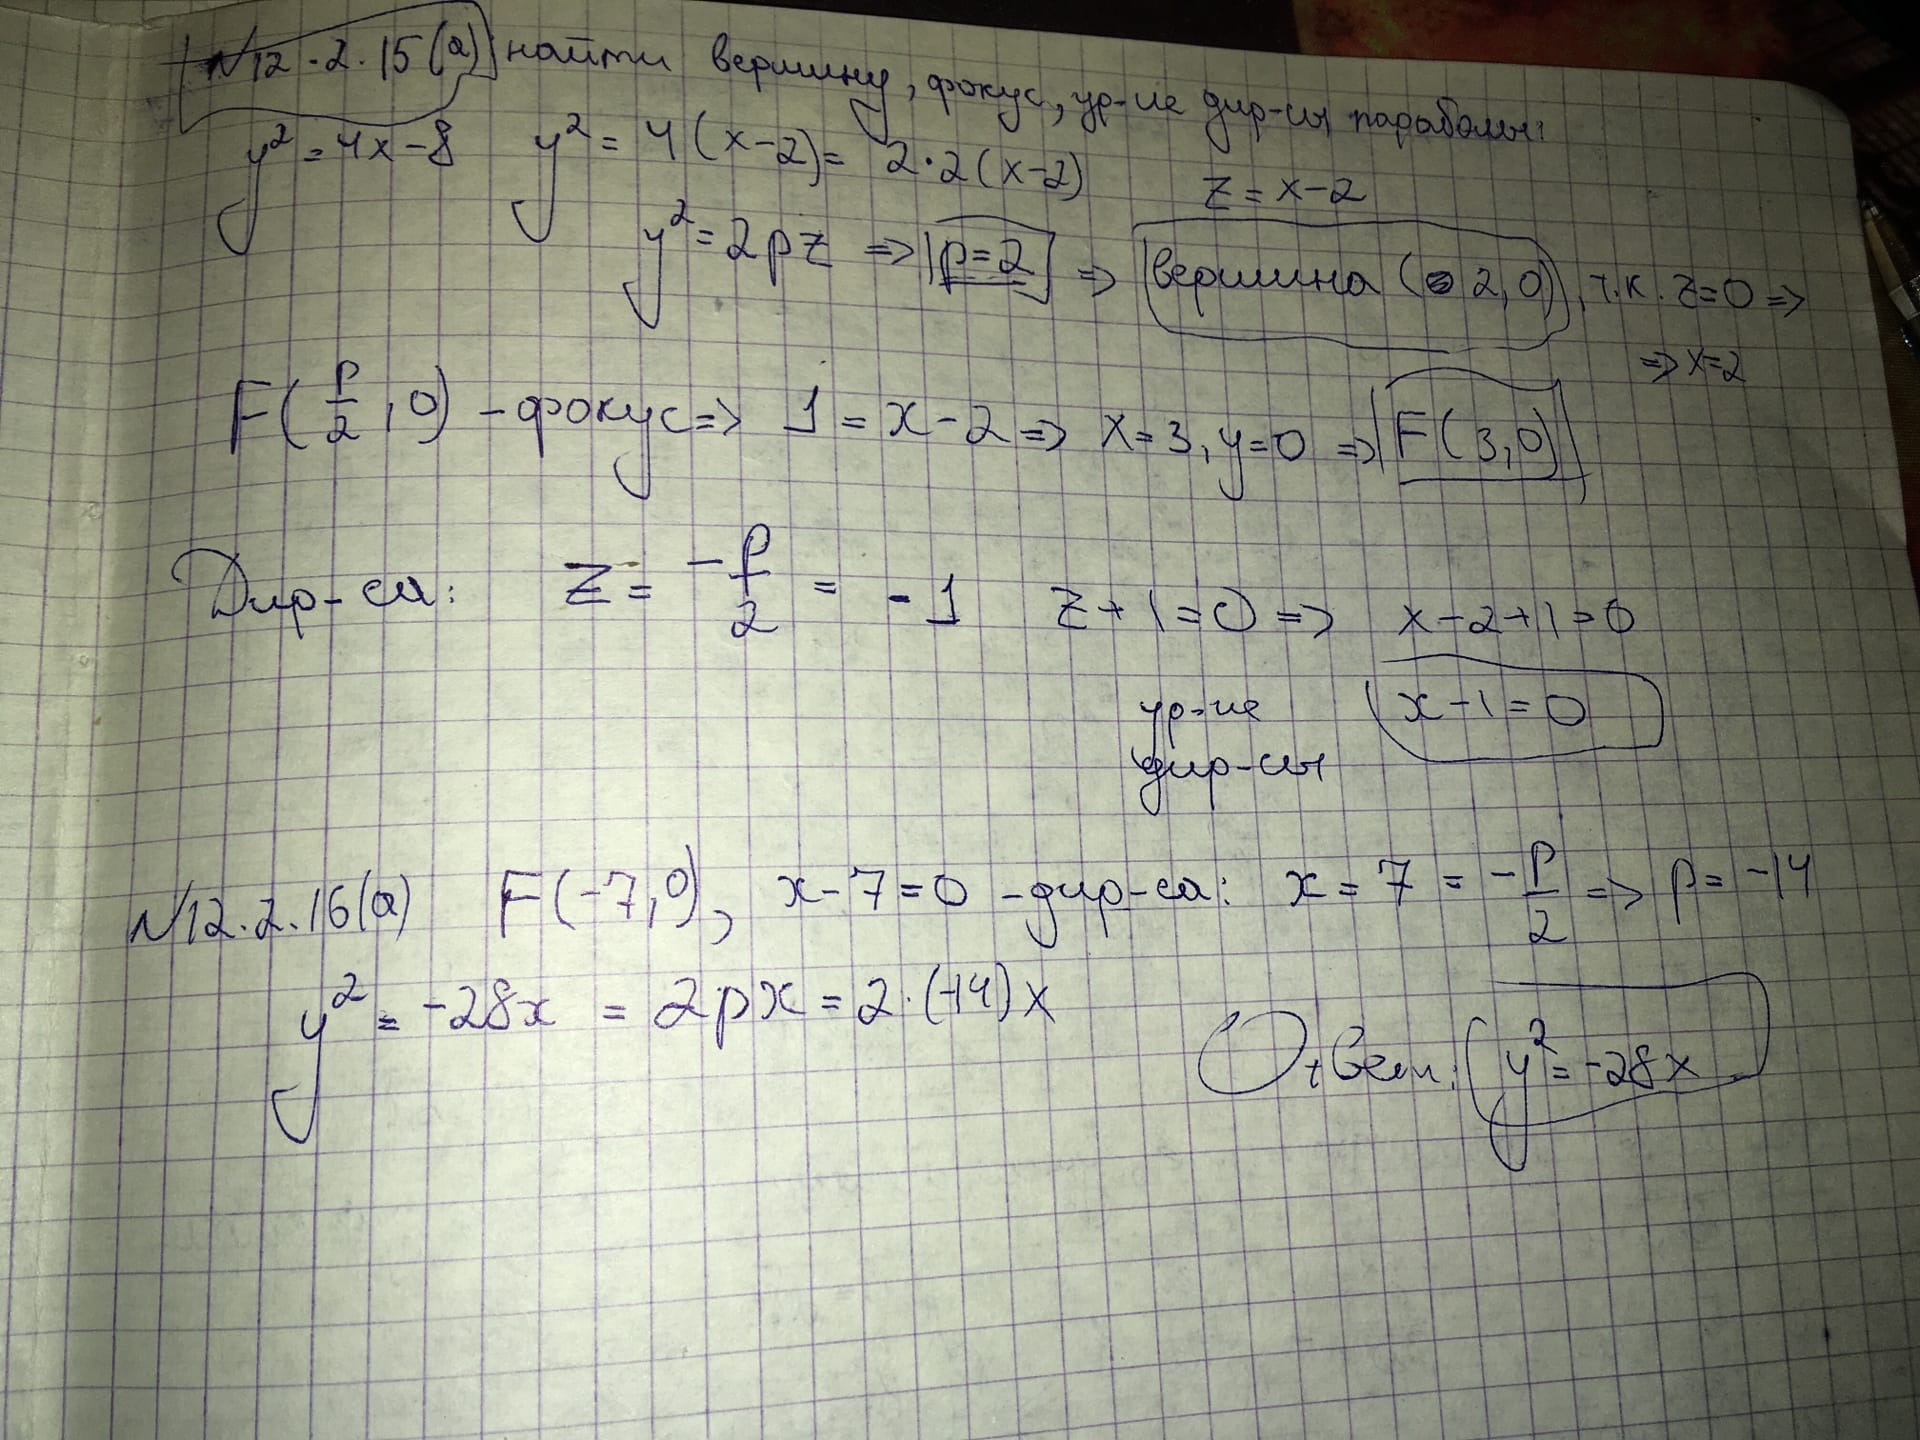 N12.2.15(а) найти вершину, фокус, ур-ие дир-сы параболы:
y² = 4x-8 y² = 4(x-2) = 2·2(x-2) z = x-2
y² = 2pz => p=2 => вершина (2,0), т.к. z=0 =>
=> x=2
F(p/2, 0) - фокус => 1 = x-2 => x=3, y=0 => F(3,0)
Дир-са: z = -p/2 = -1 z+1=0 => x-2+1=0
ур-ие x-1=0
дир-сы
N12.2.16(а) F(-7,0), x-7=0 - дир-са: x = 7 = -p/2 => p = -14
y² = -28x = 2px = 2·(-14)x
Ответ: y² = -28x